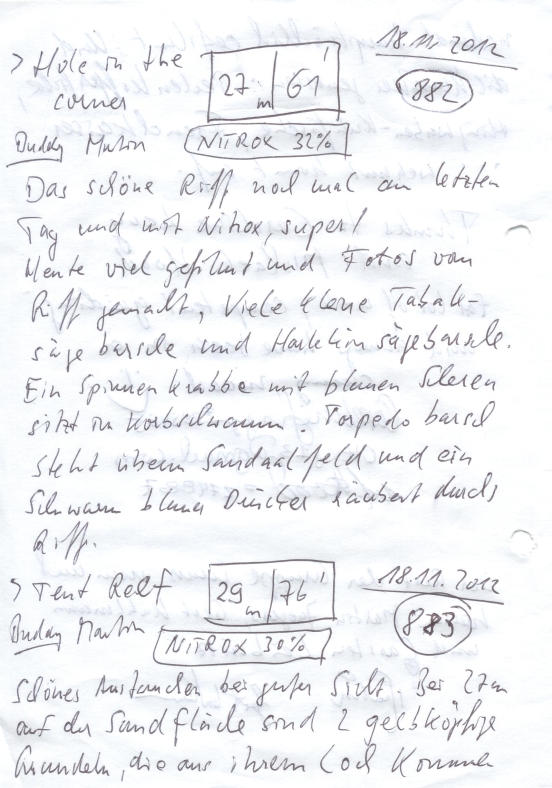 > Hole in the corner
27 m | 61'
18.11.2012
882
Buddy Martin
NITROX 32%
Das schöne Riff noch mal am letzten
Tag und mit Nitrox, super!
Heute viel gefilmt und Fotos vom
Riff gemacht, Viele kleine Tabak-
sägebarsche und Harlekin sägebarsche.
Ein Spinnenkrabbe mit blauen Scheren
sitzt im Korbschwamm. Torpedobarsch
steht überm Sandaalfeld und ein
Schwarm blauer Drücker räubert durchs
Riff.
> Tent Reef
29 m | 76'
18.11.2012
883
Buddy Martin
NITROX 30%
Schönes Austauchen bei guter Sicht. Bei 27m
auf der Sandfläche sind 2 gelbköpfige
Grundeln, die aus ihrem Loch kommen